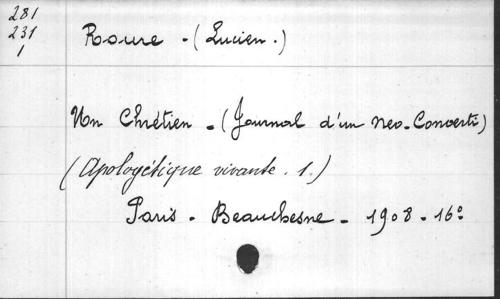 281
231
1
Roure - (Lucien.)
Un Chrétien - (Journal d'un néo-Converti)
(Apologétique vivante. 1.)
Paris - Beauchesne - 1908 - 16°